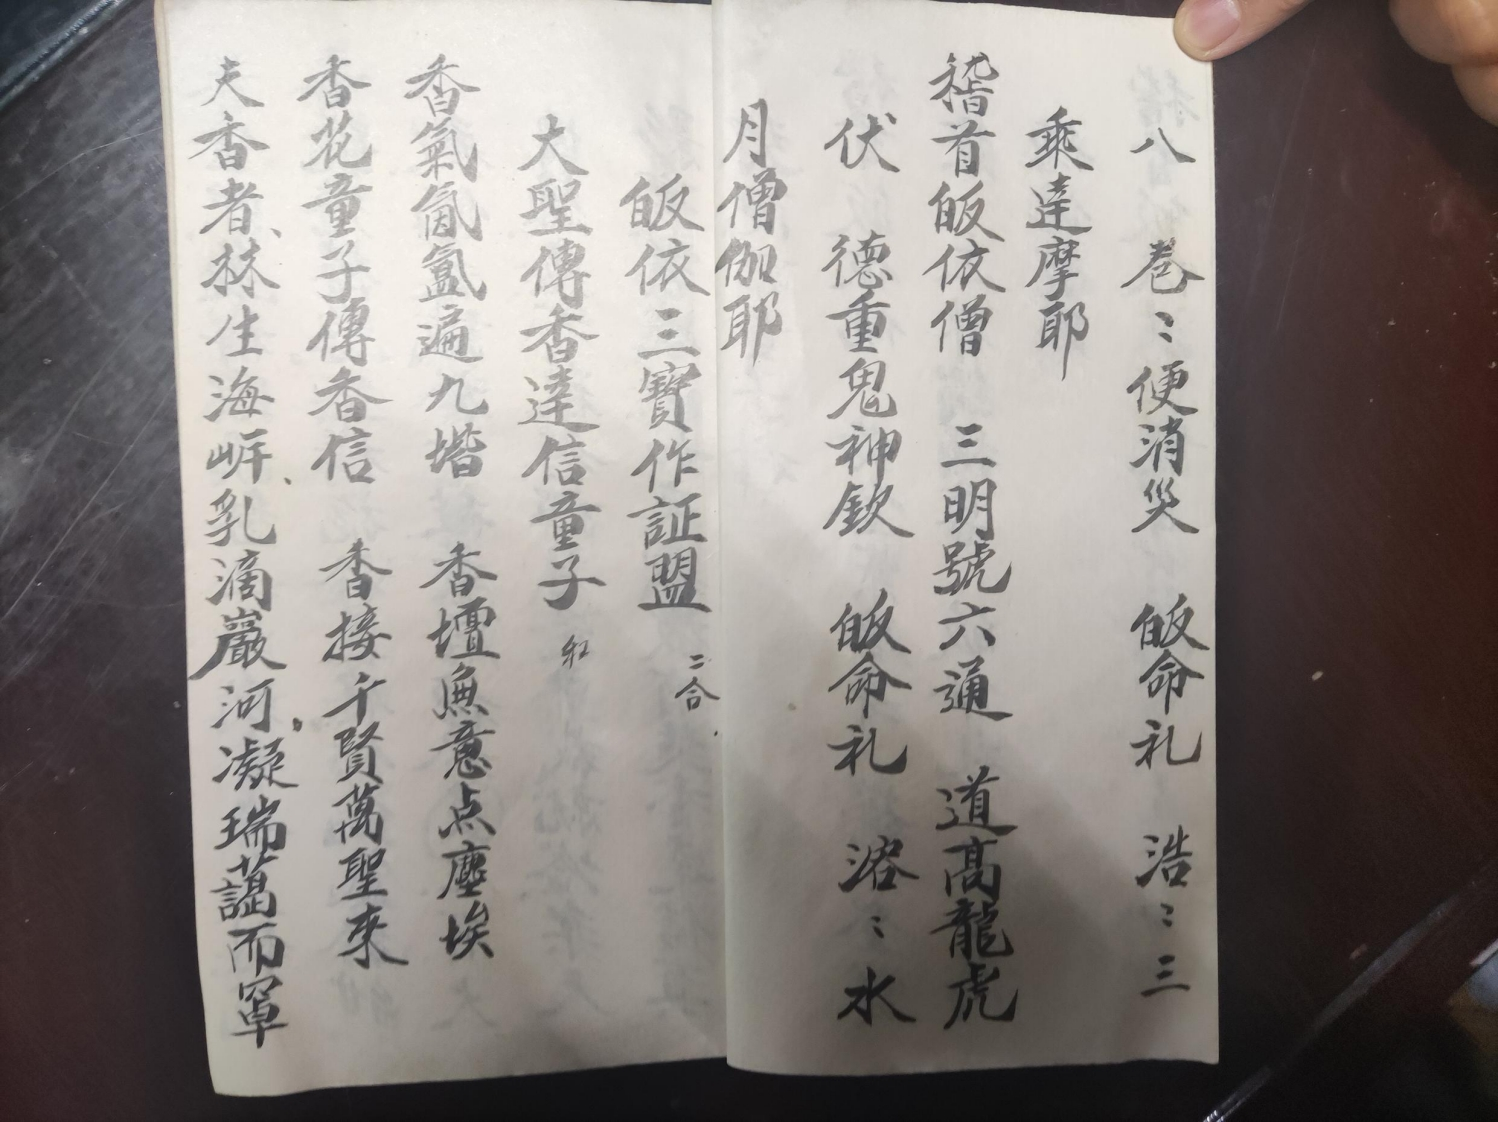 八　卷〻便消災　皈命礼　浩〻三
乘達摩耶
稽首皈依僧　三明號六通　道髙龍虎
伏　德重鬼神欽　皈命礼　溶〻水
月僧伽耶
皈依三寶作証盟　二合
大聖傳香達信童子
香氣氤氳遍九堦　香壇無意点塵埃
香花童子傳香信　香接千賢萬聖來
夫香者、林生海岍、乳滴巖河、凝瑞藹而罩